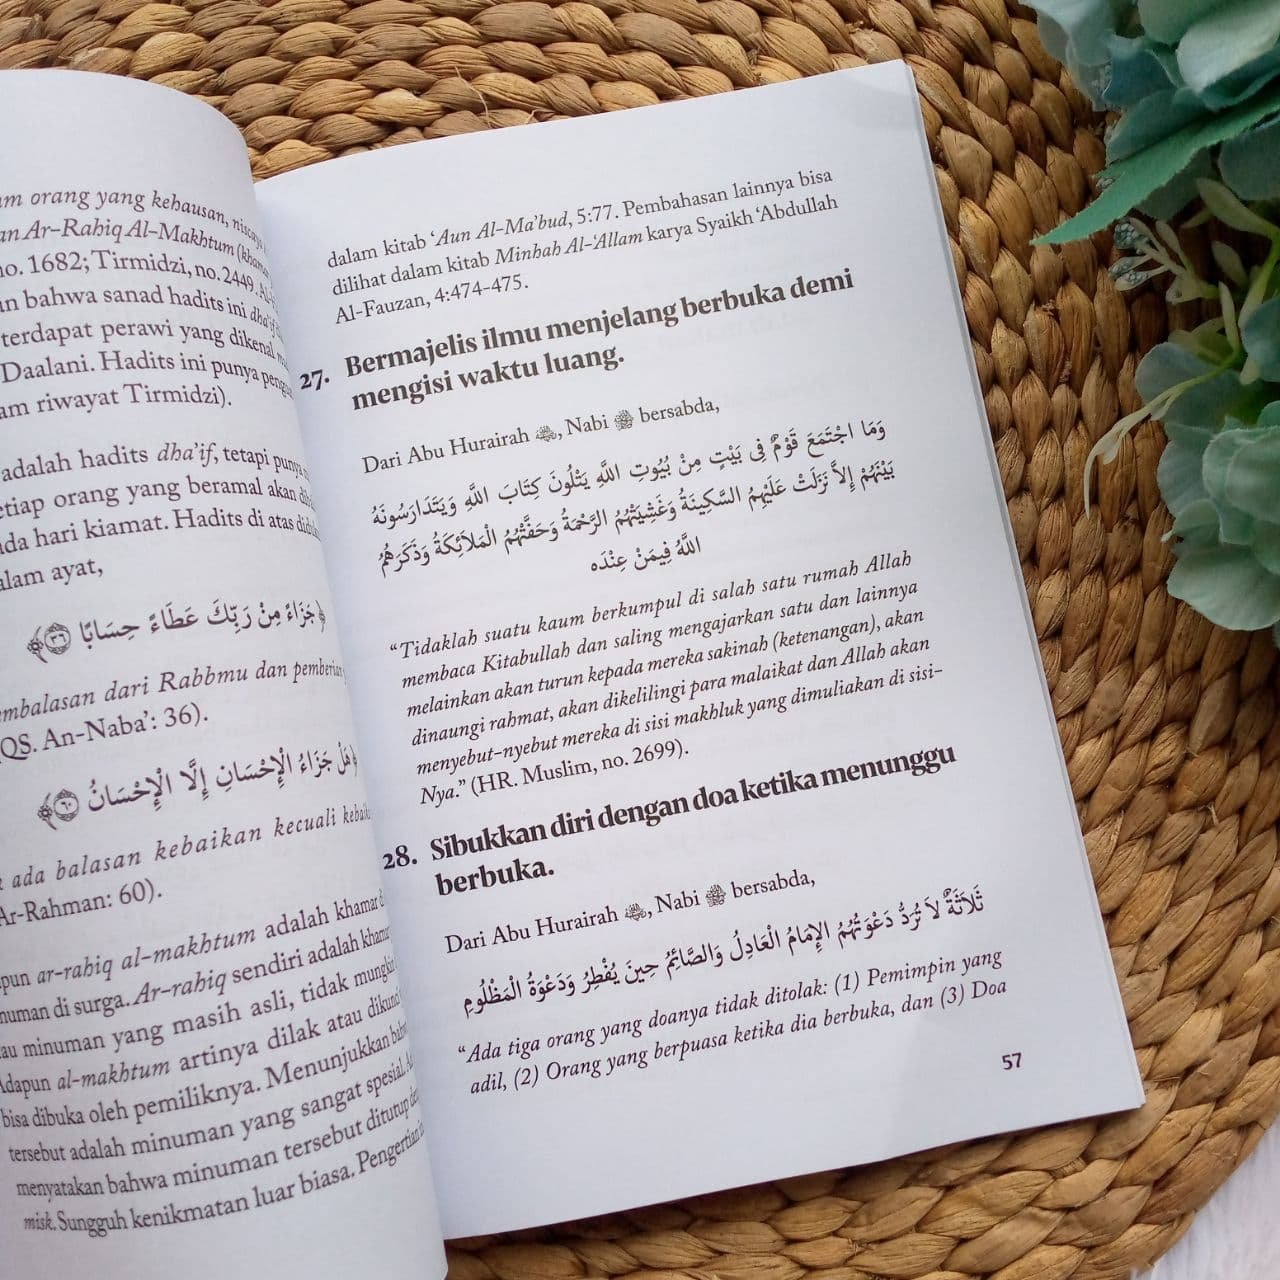 orang yang kehausan,
Ar-Rahiq Al-Makhtum
no. 1682; Tirmidzi, no. 2449.
bahwa sanad hadits ini dha'if
terdapat perawi yang dikenal
Daalani. Hadits ini punya
riwayat Tirmidzi).
adalah hadits dha'if, tetapi punya
orang yang beramal akan
hari kiamat. Hadits di atas
ayat,
﴿جَزَاءً مِنْ رَبِّكَ عَطَاءً حِسَابًا ۝٣٦﴾
dari Rabbmu dan
QS. An-Naba': 36).
﴿هَلْ جَزَاءُ الْإِحْسَانِ إِلَّا الْإِحْسَانُ ۝٦٠﴾
ada balasan kebaikan kecuali
Ar-Rahman: 60).
ar-rahiq al-makhtum adalah khamar
di surga. Ar-rahiq sendiri adalah
minuman yang masih asli, tidak mungkin
Adapun al-makhtum artinya dilak atau
bisa dibuka oleh pemiliknya. Menunjukkan
tersebut adalah minuman yang sangat spesial.
menyatakan bahwa minuman tersebut ditutup
misk. Sungguh kenikmatan luar biasa. Pengertian
dalam kitab ‘Aun Al-Ma’bud, 5:77. Pembahasan lainnya bisa
dilihat dalam kitab Minhah Al-‘Allam karya Syaikh ‘Abdullah
Al-Fauzan, 4:474-475.
27. Bermajelis ilmu menjelang berbuka demi
mengisi waktu luang.
Dari Abu Hurairah , Nabi ﷺ bersabda,
وَمَا اجْتَمَعَ قَوْمٌ فِى بَيْتٍ مِنْ بُيُوتِ اللَّهِ يَتْلُونَ كِتَابَ اللَّهِ وَيَتَدَارَسُونَهُ
بَيْنَهُمْ إِلاَّ نَزَلَتْ عَلَيْهِمُ السَّكِينَةُ وَغَشِيَتْهُمُ الرَّحْمَةُ وَحَفَّتْهُمُ الْمَلاَئِكَةُ وَذَكَرَهُمُ
اللَّهُ فِيمَنْ عِنْدَه
“Tidaklah suatu kaum berkumpul di salah satu rumah Allah
membaca Kitabullah dan saling mengajarkan satu dan lainnya
melainkan akan turun kepada mereka sakinah (ketenangan), akan
dinaungi rahmat, akan dikelilingi para malaikat dan Allah akan
menyebut-nyebut mereka di sisi makhluk yang dimuliakan di sisi-
Nya.” (HR. Muslim, no. 2699).
28. Sibukkan diri dengan doa ketika menunggu
berbuka.
Dari Abu Hurairah , Nabi ﷺ bersabda,
ثَلاَثَةٌ لاَ تُرَدُّ دَعْوَتُهُمُ الإِمَامُ الْعَادِلُ وَالصَّائِمُ حِينَ يُفْطِرُ وَدَعْوَةُ الْمَظْلُومِ
“Ada tiga orang yang doanya tidak ditolak: (1) Pemimpin yang
adil, (2) Orang yang berpuasa ketika dia berbuka, dan (3) Doa
57